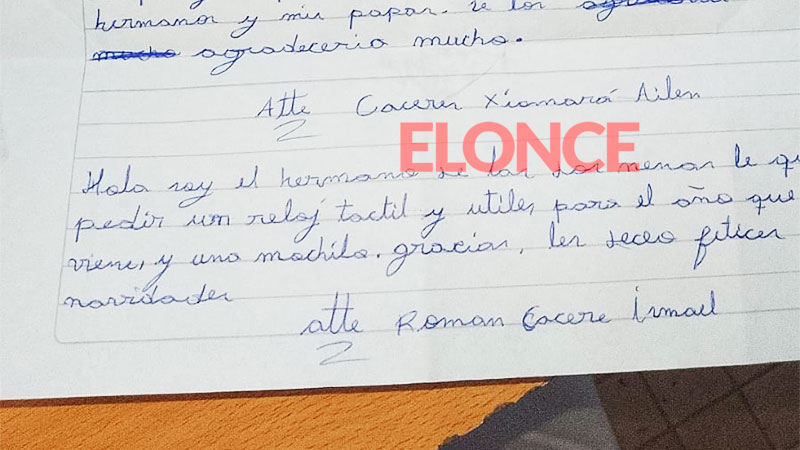 hermanos y mis papas. se los
mucho agradeceria mucho.
Atte Caceres Xiomara Ailen
ELONCE
Hola soy el hermano de las dos nenas le qu
pedir um reloj tactil y utiles, para el año que
viene, y una mochila. gracias, les deceo felices
navidades
atte Roman Cacere Ismael